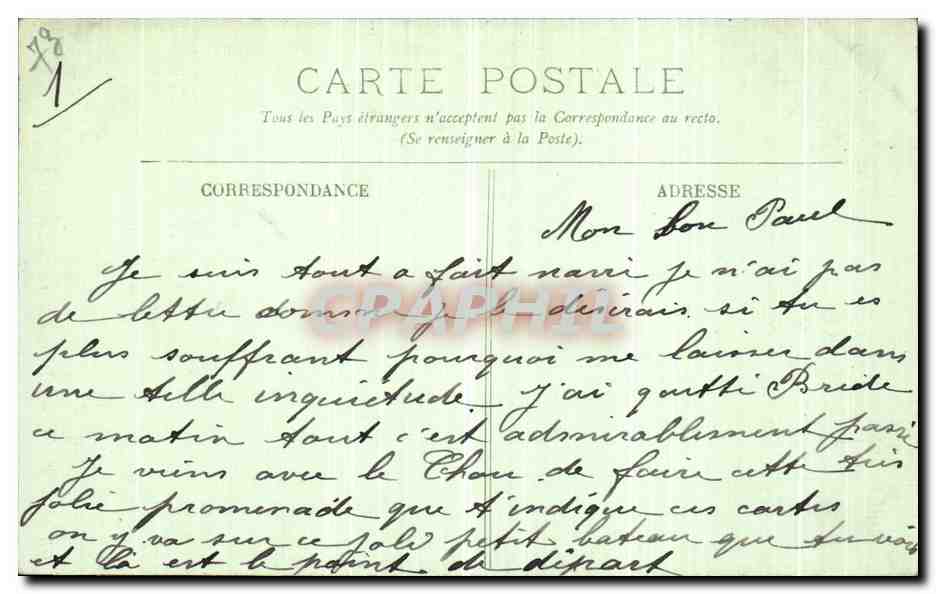 73
1
CARTE POSTALE
Tous les Pays étrangers n'acceptent pas la Correspondance au recto.
(Se renseigner à la Poste).
CORRESPONDANCE
ADRESSE
Mon bon Paul
Je suis tout a fait navri je n'ai pas
de lettre comme je le désirais. si tu es
plus souffrant pourquoi me laisser dans
une telle inquiétude. J'ai quitté Bride
ce matin tout c'est admirablement passé
Je viens avec le Chou de faire cette très
jolie promenade que t'indique ces cartes
on y va sur ce joli petit bateau que tu vois
et là est le point de départ
CPAPHIL